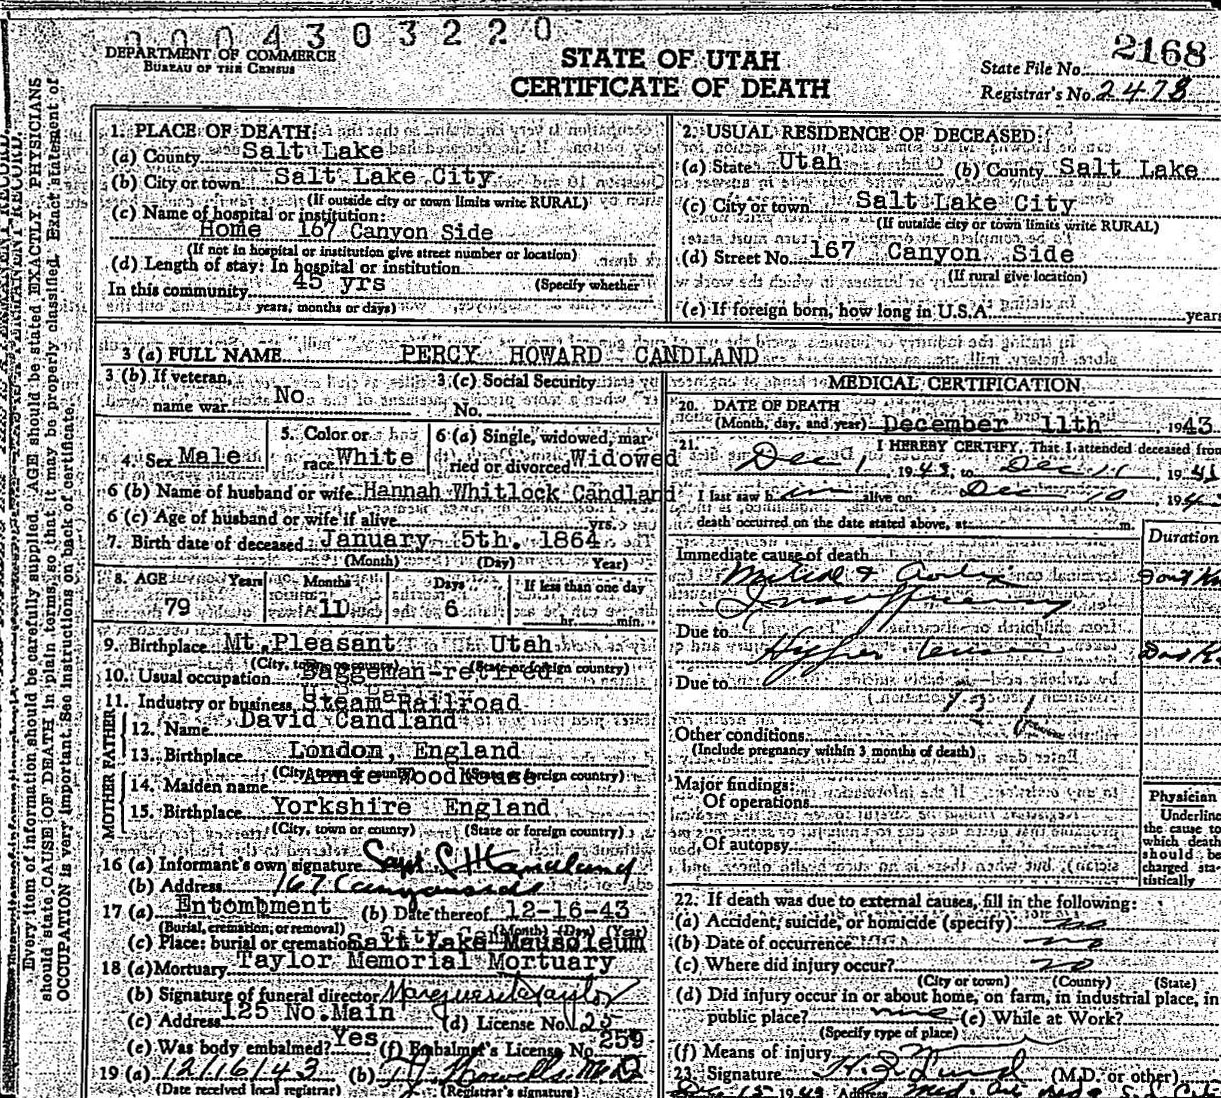 0004303220
DEPARTMENT OF COMMERCE
BUREAU OF THE CENSUS
STATE OF UTAH
CERTIFICATE OF DEATH
2168
State File No.
Registrar's No. 2478
Every item of information should be carefully supplied. AGE should be stated EXACTLY. PHYSICIANS
should state CAUSE OF DEATH in plain terms, so that it may be properly classified. Exact statement of
OCCUPATION is very important. See instructions on back of certificate.
1. PLACE OF DEATH:
(a) County Salt Lake
(b) City or town Salt Lake City
(If outside city or town limits write RURAL)
(c) Name of hospital or institution:
Home 167 Canyon Side
(If not in hospital or institution give street number or location)
(d) Length of stay: In hospital or institution
In this community 45 yrs (Specify whether
years, months or days)
2. USUAL RESIDENCE OF DECEASED:
(a) State Utah (b) County Salt Lake
(c) City or town Salt Lake City
(If outside city or town limits write RURAL)
(d) Street No. 167 Canyon Side
(If rural give location)
(e) If foreign born, how long in U.S.A. years
3 (a) FULL NAME PERCY HOWARD CANDLAND
3 (b) If veteran,
name war No
3 (c) Social Security
No.
4. Sex Male
5. Color or
race White
6 (a) Single, widowed, mar-
ried or divorced Widowed
6 (b) Name of husband or wife Hannah Whitlock Candland
6 (c) Age of husband or wife if alive yrs.
7. Birth date of deceased January 5th. 1864
(Month) (Day) Year)
8. AGE Years Months Days If less than one day
79 11 6 hr. min.
9. Birthplace Mt. Pleasant Utah
(City, town or county) (State or foreign country)
10. Usual occupation Baggeman-retired
11. Industry or business Steam Railroad
FATHER
12. Name David Candland
13. Birthplace London, England
(City, town or county) (State or foreign country)
MOTHER
14. Maiden name Annie Woodhouse
15. Birthplace Yorkshire England
(City, town or county) (State or foreign country)
16 (a) Informant's own signature Candland
(b) Address 167 Canyonside
17 (a) Entombment (b) Date thereof 12-16-43
(Burial, cremation, or removal) (Month) (Day) (Year)
(c) Place: burial or cremation Salt Lake Mausoleum
18 (a) Mortuary Taylor Memorial Mortuary
(b) Signature of funeral director Marguerite Taylor
(c) Address 125 No. Main (d) License No. 25
(e) Was body embalmed? Yes (f) Embalmer's License No. 259
19 (a) 12/16/43 (b) M.D.
(Date received local registrar) (Registrar's signature)
MEDICAL CERTIFICATION
20. DATE OF DEATH
(Month, day, and year) December 11th 1943
21. I HEREBY CERTIFY, That I attended deceased from
Dec 1 1943, to Dec 11 1943
I last saw him alive on Dec 10 194
death occurred on the date stated above, at m.
Duration
Immediate cause of death
Mitral & Aortic
Insufficiency
Due to
Hyper tension
Due to
Other conditions
(Include pregnancy within 3 months of death)
Major findings:
Of operations
Of autopsy
Physician
Underline
the cause to
which death
should be
charged sta-
tistically
22. If death was due to external causes, fill in the following:
(a) Accident, suicide, or homicide (specify) no
(b) Date of occurrence no
(c) Where did injury occur? no
(City or town) (County) (State)
(d) Did injury occur in or about home, on farm, in industrial place, in
public place? (e) While at Work?
(Specify type of place)
(f) Means of injury
23. Signature (M.D. or other)
Address